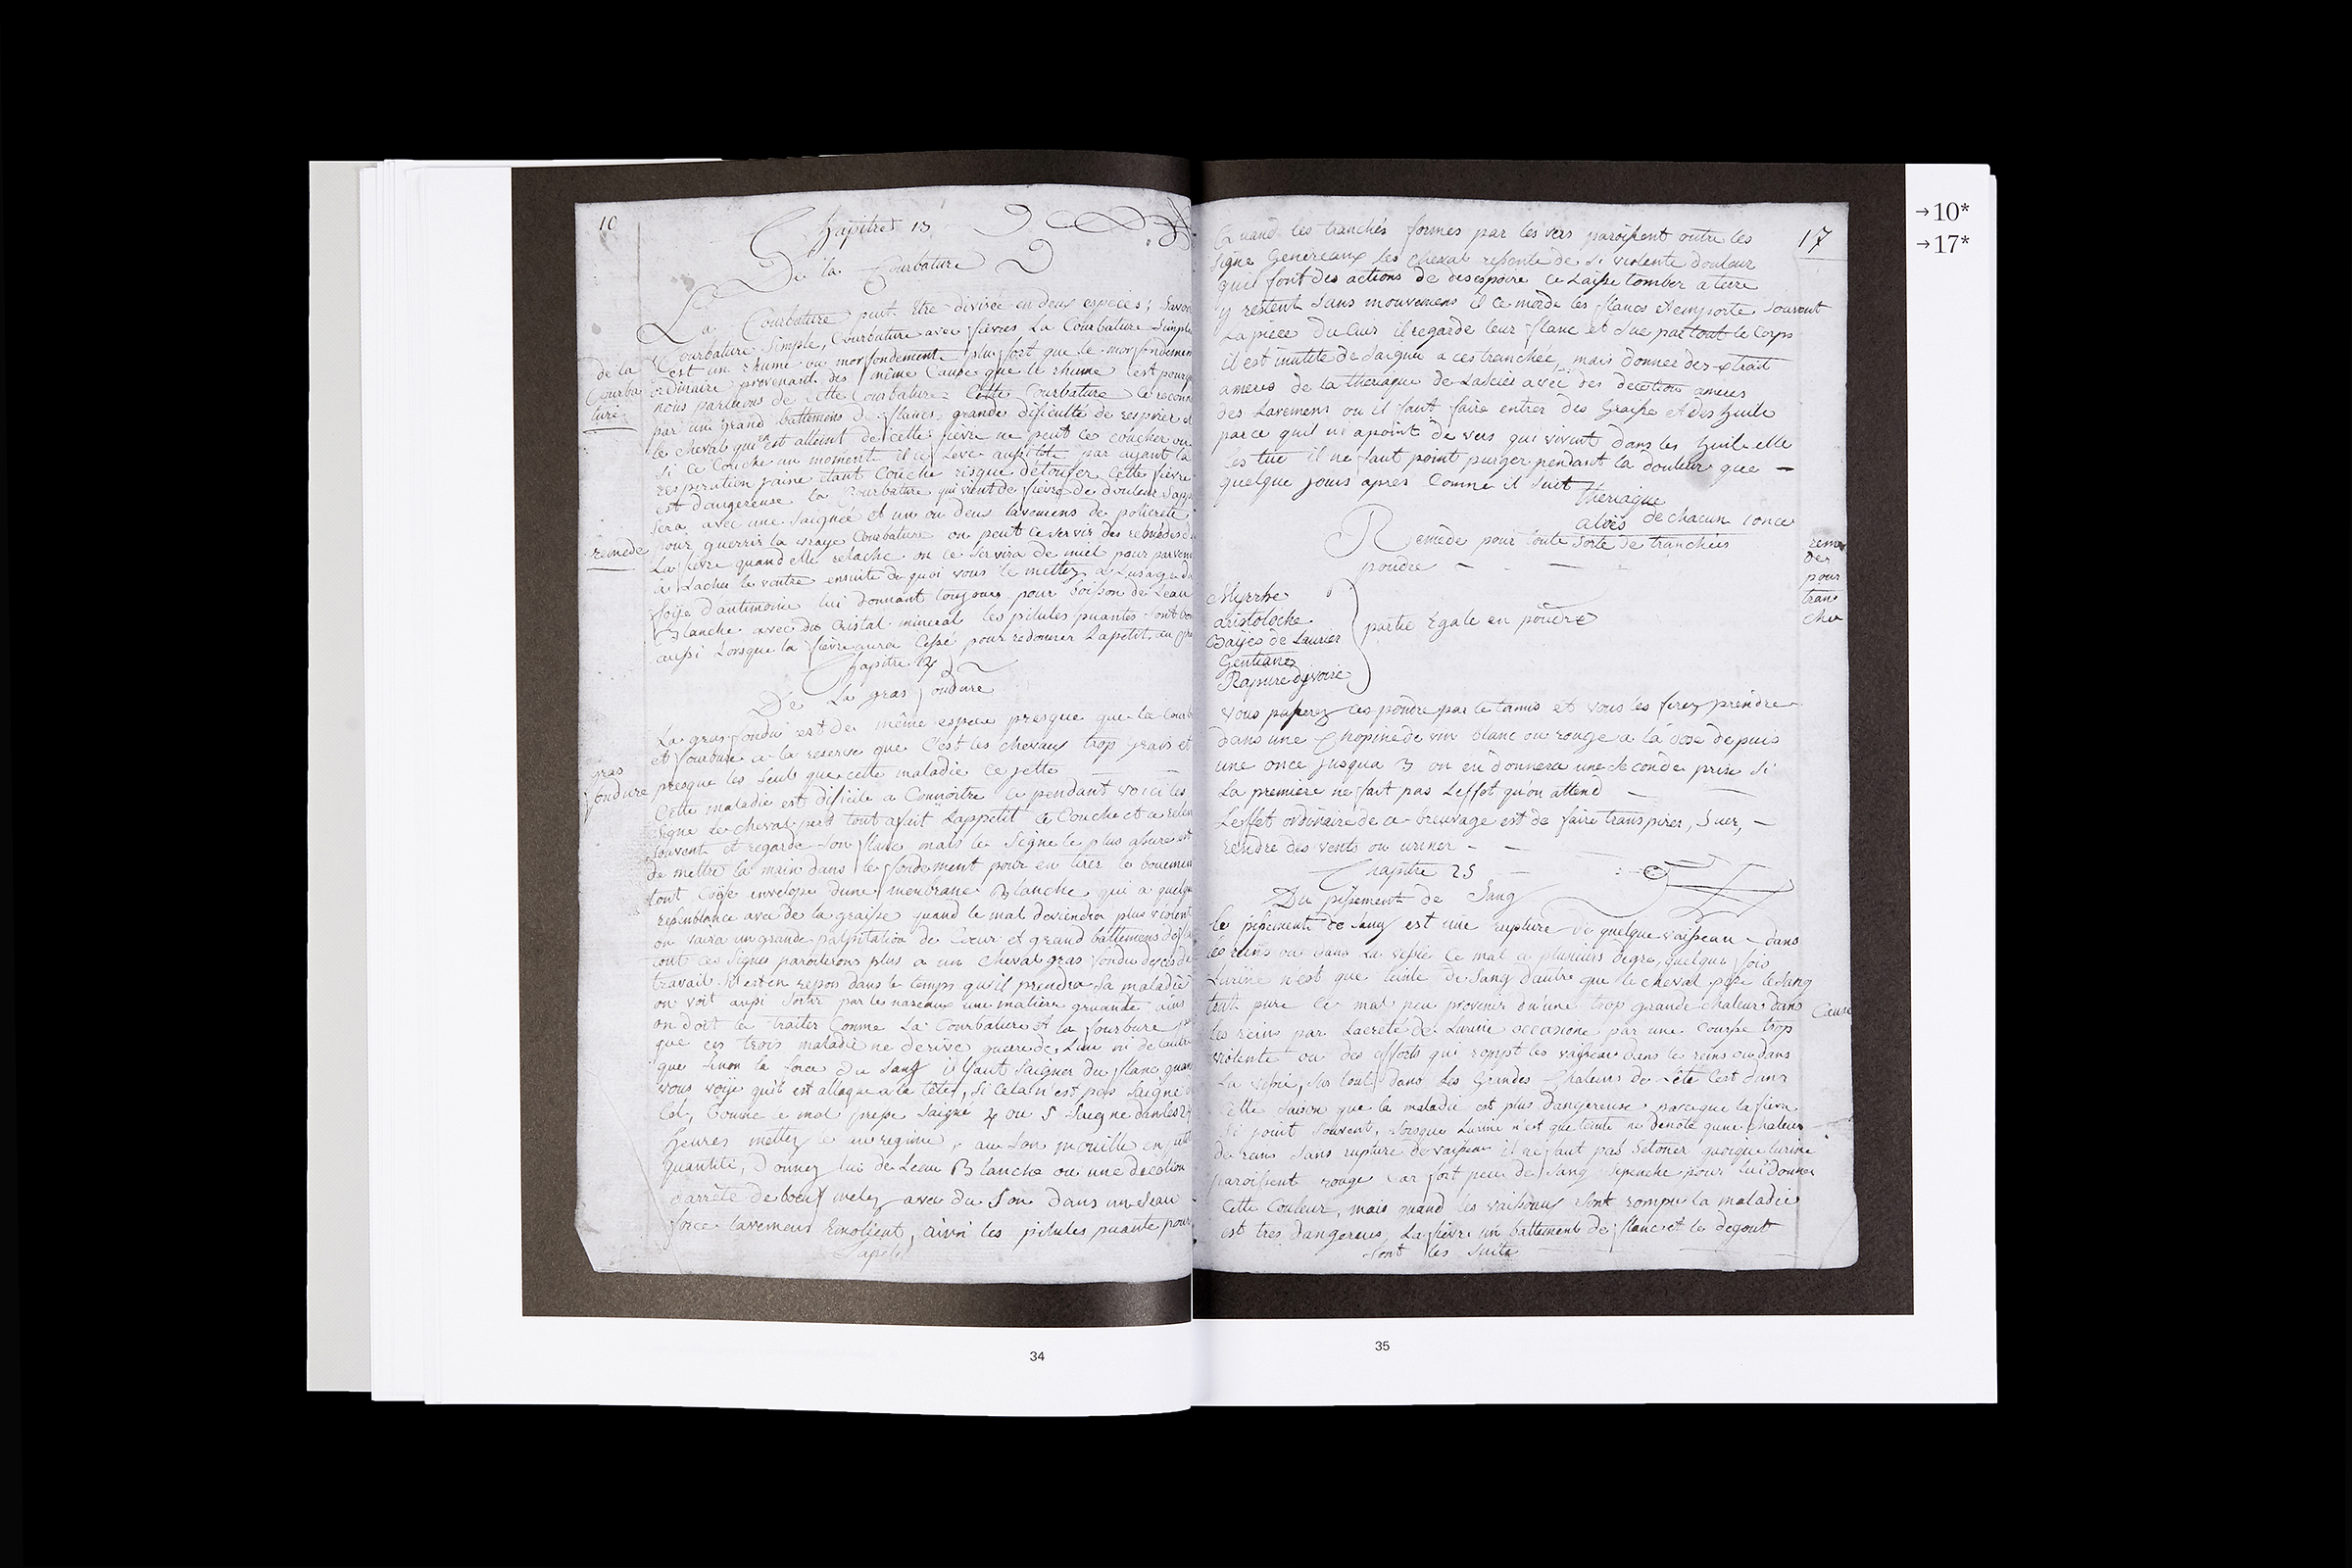 10
Chapitre 13
De la Courbature
La Courbature peut Etre divisée en deux especes; Savoir
Courbature Simple, Courbature avec fievres La Courbature Simple
de la
Courba
ture
est un rhume ou morfondement plus fort que le morfondement
ordinaire provenant des même Cause que le rhume
nous parlerons de cette Courbature. Cette Courbature ce
par un grand battemens de flancs, grande dificulté de respirer et
le cheval qui en est atteint de cette fievre ne peut ce coucher ou
Si ce Couche un moment il ce Leve ausitôt par
respiration étant Couché risque détoufer Cette fievre
est dangereuse la Courbature qui vient de fievre de douleur
sera avec une Saignée et un ou deux lavemens de policrete
remede
pour guerrir la vraye Courbature on peut ce servir des remedes
La fievre quand elle relache on ce Servira de miel pour
a Lacher le ventre ensuite de quoi vous le mettez a Lusage du
foye d'antimoine lui donnant toujours pour boison de Leau
Blanche avec du Cristal mineral les pilules puantes sont bon
ausi Lorsque la fievre aura Cessé pour redonner Lapetit
Chapitre 14
De La gras fondure
gras
fondure
La gras fondu est de même espece presque que la Courb
et fourbure a la reserve que C'est les chevaux trop grais et
presque les Seuls que cette maladie ce jette
Cette maladie est dificile a Connoitre ce pendant voici les
Signe Le cheval pert tout afait Lappetit ce Couche et ce relev
Souvent et regarde Son flanc mais le Signe le plus asuré est
de mettre la main dans le fondement pour en tirer
tout envelope dune membrane Blanche qui a quelque
resemblance avec de la graisse quand le mal deviendra plus violent
on vaira un grande palpitation de Coeur et grand battemens
tout ces Signes paroiterons plus a un cheval gras fondu
travail Sil est en repos dans le temps qu'il prendra Sa maladie
on voit ausi Sortir par les naseaux une matiere
on doit le traiter Comme La Courbature et la fourbure
que ces trois maladie ne derive guere de Lun ni de Lautre
que Sinon la force du Sang il faut Saigner du flanc quand
vous voye quil est attaque a la tête, Si Cela n'est pas Saigné
Col, Comme le mal presse Saigné 4 ou 5 Saigné dans les 24
heures mettez le au regime, au Son mouillé en
quantité, Donnez lui de Leau Blanche ou une decotion
d'arrête de boeuf melez avec du Son dans un Seau
force lavemens Emolient, ainsi les pilules puante pour
17
Quand les tranchés formes par les vers paroissent outre les
Signe Genereaux Les cheval resente de Si violente douleur
quil font des actions de desespoire ce Laisse tomber a terre
y restent Sans mouvemens il ce morde les flancs et emporte Souvent
La piece du Cuir il regarde leur flanc et Sue par tout le Corps
il est inutile de Saigner a ces tranchée, mais donner des extrait
ameres de la theriaque de avec des decotion ameres
des Lavemens ou il faut faire entrer des Graisse et des huile
parce quil ni a point de vers qui vivent dans les huile elle
les tue il ne faut point purger pendant la douleur que
quelque jours apres Comme il Suit
Theriaque
alöes de chacun 1 once
Remede pour toute Sorte de tranchées
poudre
reme
des
pour
tran
ches
Myrrhe
aristoloche
Bayes de Laurier
Gentiane
Rapure d'yvoire
partie Egale en poudre
Vous passerez ces poudre par le tamis et vous les ferez prendre
dans une Chopine de vin blanc ou rouge a la dose depuis
une once jusqua 3 on en donnera une Seconde prise Si
La premiere ne fait pas Leffet qu'on attend
Leffet ordinaire de ce breuvage est de faire transpirer, Suer,
rendre des vents ou uriner
Chapitre 25
Du pissement de Sang
Le pissement de Sang est une rupture de quelque vaisseau dans
les reins ou dans La vesie Ce mal a plusieurs degre, quelque fois
Lurine n'est que teinte de Sang dautre que le cheval pisse le Sang
tout pure Ce mal peu provenir d'une trop grande chaleur dans
Cause
les reins par Lacreté de Lurine occasione par une Course trop
violente ou des efforts qui rompt les vaisseau dans le reins ou dans
La vesie, Sur tout dans Les Grandes Chaleurs de Lété C'est dans
Cette Saison que la maladie est plus dangereuse parceque la fievre
Si joint Souvent, Lorsque Lurine n'est que teinte ne denote qune chaleur
de reins Sans rupture de vaisseau il ne faut pas Setoner quoique Lurine
paroissent rouge Car fort peu de Sang pour Lui Donner
Cette Couleur, mais quand les vaisseaux Sont rompu la maladie
est tres dangereus, La fievre un battement de flanc et le degout
Sont les Suite
→10*
→17*
34
35